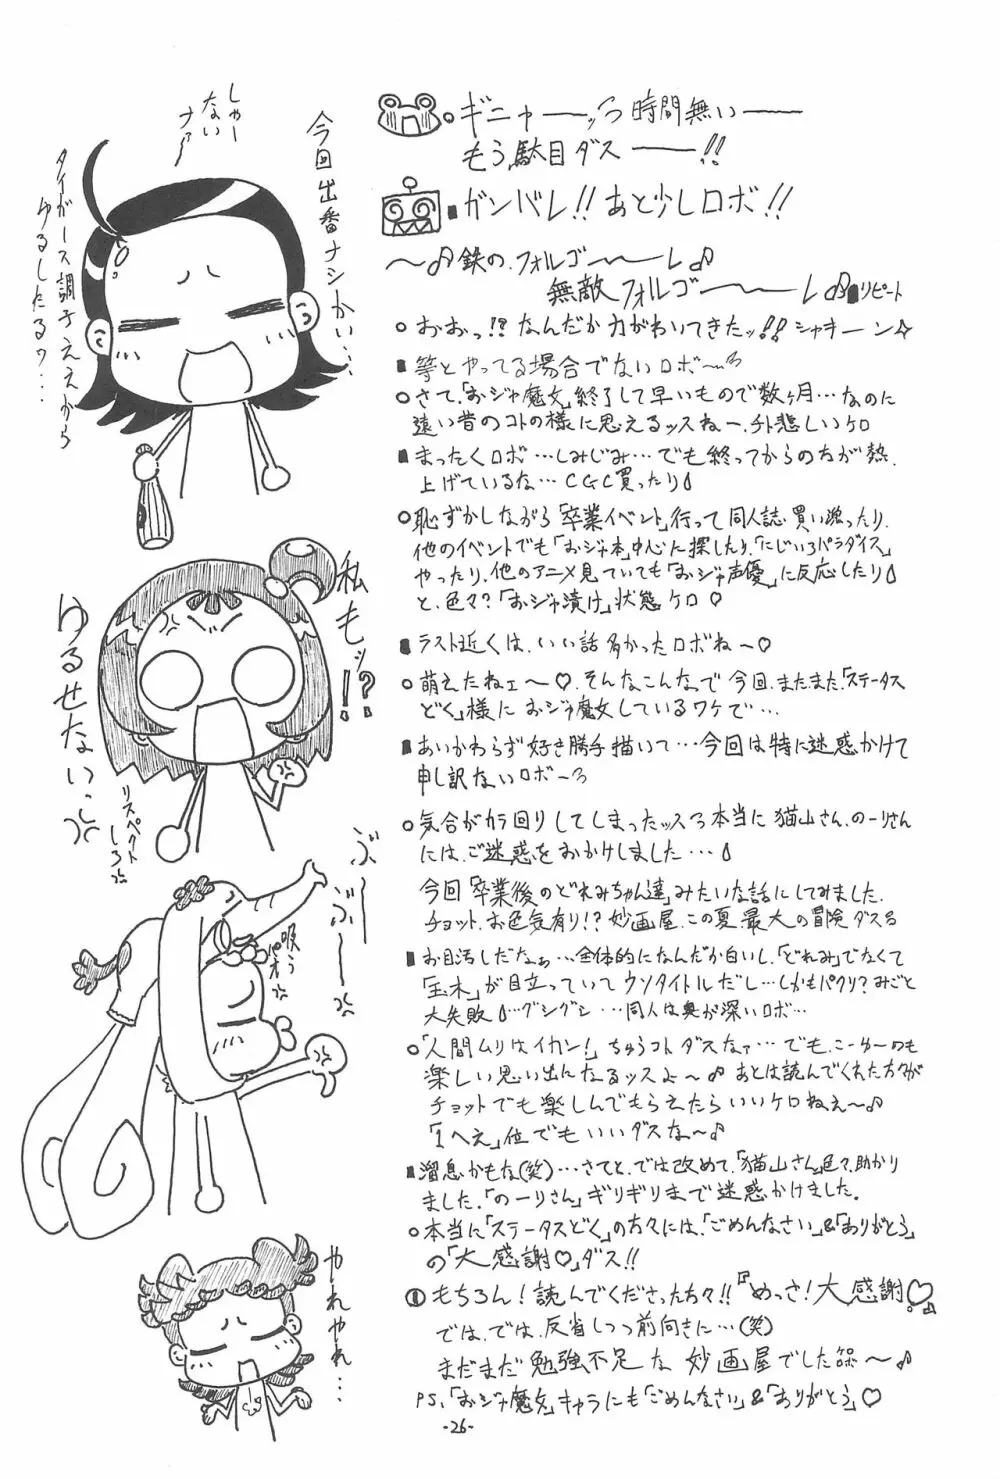 ギニャーーッ 時間無いーー
もう駄目ダスーー!!
ガンバレ!!あと少しロボ!!
〜♪鉄の、フォルゴ〜〜〜レ♪
無敵フォルゴ〜〜〜レ♪ リピート
おおっ!?なんだか力がわいてきたッ!!シャキーン☆
等とやってる場合でないロボ〜
さて、「おジャ魔女」終了して早いもので数ヶ月…なのに
遠い昔のコトの様に思えるッスねー、チト悲しいケロ
まったくロボ…しみじみ…でも終ってからの方が熱
上げているな…CGC買ったり
恥ずかしながら「卒業イベント」行って同人誌買い漁ったり、
他のイベントでも「おジャ本」中心に探したり、「にじいろパラダイス」
やったり、他のアニメ見ていても「おジャ声優」に反応したり
と、色々?「おジャ漬け」状態ケロ♡
ラスト近くは、いい話多かったロボね〜♡
萌えたねェ〜♡、そんなこんなで今回、またまた「ステータス
どく」様におジャ魔女しているワケで…
あいかわらず好き勝手描いて…今回は特に迷惑かけて
申し訳ないロボ〜
気合がカラ回りしてしまったッス 本当に猫山さん、のーりさん
には、ご迷惑をおかけしました…
今回「卒業後のどれみちゃん達」みたいな話にしてみました、
チョット、お色気有り!?妙画屋、この夏、最大の冒険ダス
お目汚しだなぁ…全体的になんだか白いし、「どれみ」でなくて
「玉木」が目立っていてウソタイトルだし…しかもパクリ?みごと
大失敗…グシグシ…同人は奥が深いロボ…
「人間ムリはイカン!」ちゅうコトダスなァ…でも、こーゆーのも
楽しい思い出になるッスよ〜♪あとは読んでくれた方々が
チョットでも楽しんでもらえたらいいケロねえ〜♪
「1へえ」位でもいいダスな〜♪
溜息かもな(笑)…さてと、では改めて、「猫山さん」色々助かり
ました、「のーりさん」ギリギリまで迷惑かけました。
本当に「ステータスどく」の方々には、「ごめんなさい」&「ありがとう」
の「大感謝♡」ダス!!
もちろん!読んでくださった方々!!『めっさ!大感謝♡』
では、では、反省しつつ前向きに…(笑)
まだまだ勉強不足な妙画屋でした〜♪
PS、「おジャ魔女」キャラにも「ごめんなさい」&「ありがとう」♡
-26-
今回出番ナシかい…
しゃー
ない
ナァ〜
タイガース調子ええから
ゆるしたるワ…
私もッ!?
ゆるせないっ
リスペクト
しろ
ぶ〜
ぶ〜〜
吸う
パオ
やれやれ…